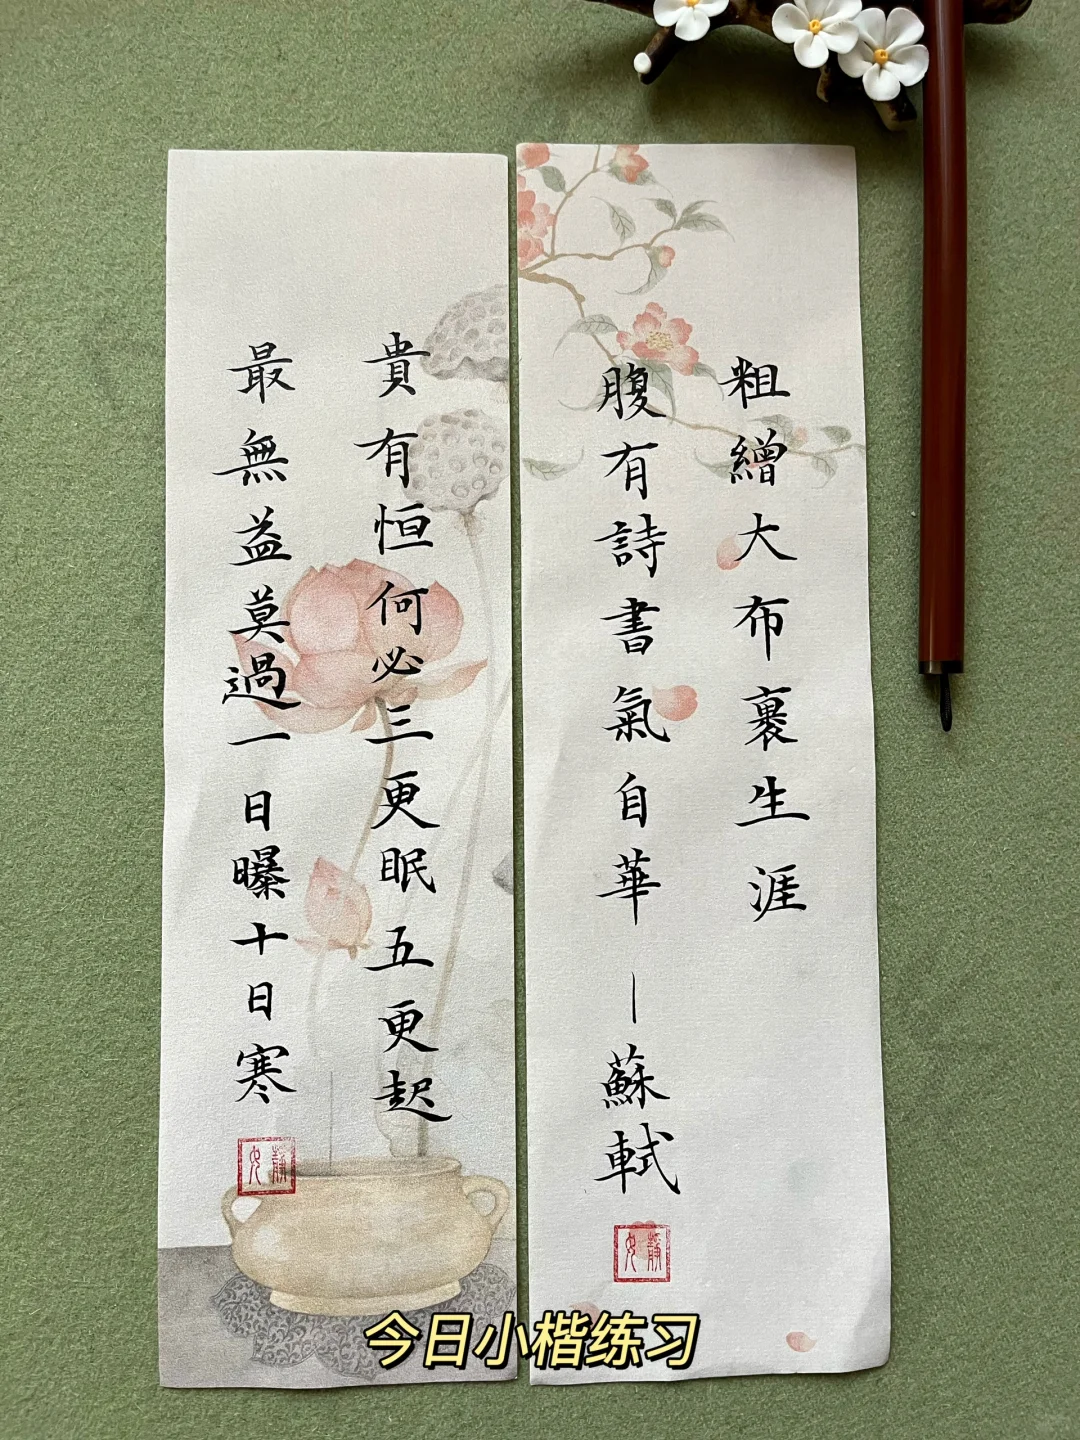 粗繒大布裹生涯
腹有詩書氣自華 — 蘇軾
貴有恒何必三更眠五更起
最無益莫過一日曝十日寒
今日小楷练习